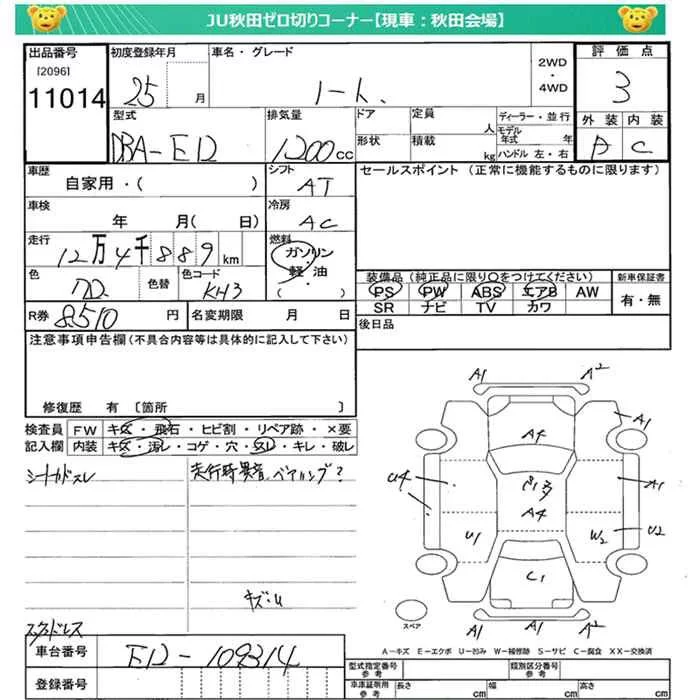 JU秋田ゼロ切りコーナー【現車：秋田会場】
出品番号 初度登録年月 車名・グレード 2WD・4WD 評価点
[2096]
11014 25 月 ノート 3
型式 排気量 ドア 定員 人 ディーラー・並行 外装 内装
DBA-E12 1200cc 形状 積載 kg モデル年式 年 ハンドル 左・右 A C
車歴 シフト セールスポイント (正常に機能するものに限ります)
自家用・( ) AT
車検 冷房
年 月( 日) AC
走行 燃料
12万4千889km ガソリン・軽・油
色 色替 色コード ( ) 装備品 (純正品に限り○をつけてください) 新車保証書
KH3 PS PW ABS エアB AW 有・無
SR ナビ TV カワ
R券 8510円 名変期限 月 日 後日品
注意事項申告欄(不具合内容等は具体的に記入して下さい)
修復歴 有 〔箇所 〕
検査員 FW キズ・飛石・ヒビ割・リペア跡・×要
記入欄 内装 キズ・汚レ・コゲ・穴・スレ・キレ・破レ
走行時異音、ベアリング?
キズ・U
スタッドレス
A1 A2
A1
A4
U4 A1
A4
U1 W2 U2
C1
A1 A1 A2
スペア
A－キズ E－エクボ U－凹み W－補修跡 S－サビ C－腐食 XX－交換済
車台番号 E12-109314
登録番号
型式指定番号 参考 類別区分番号 参考
車庫証明用 参考 長さ cm 幅 cm 高さ cm